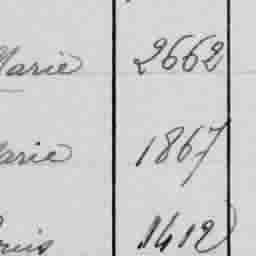 Marie 2662
Marie 1867
Louis 1412